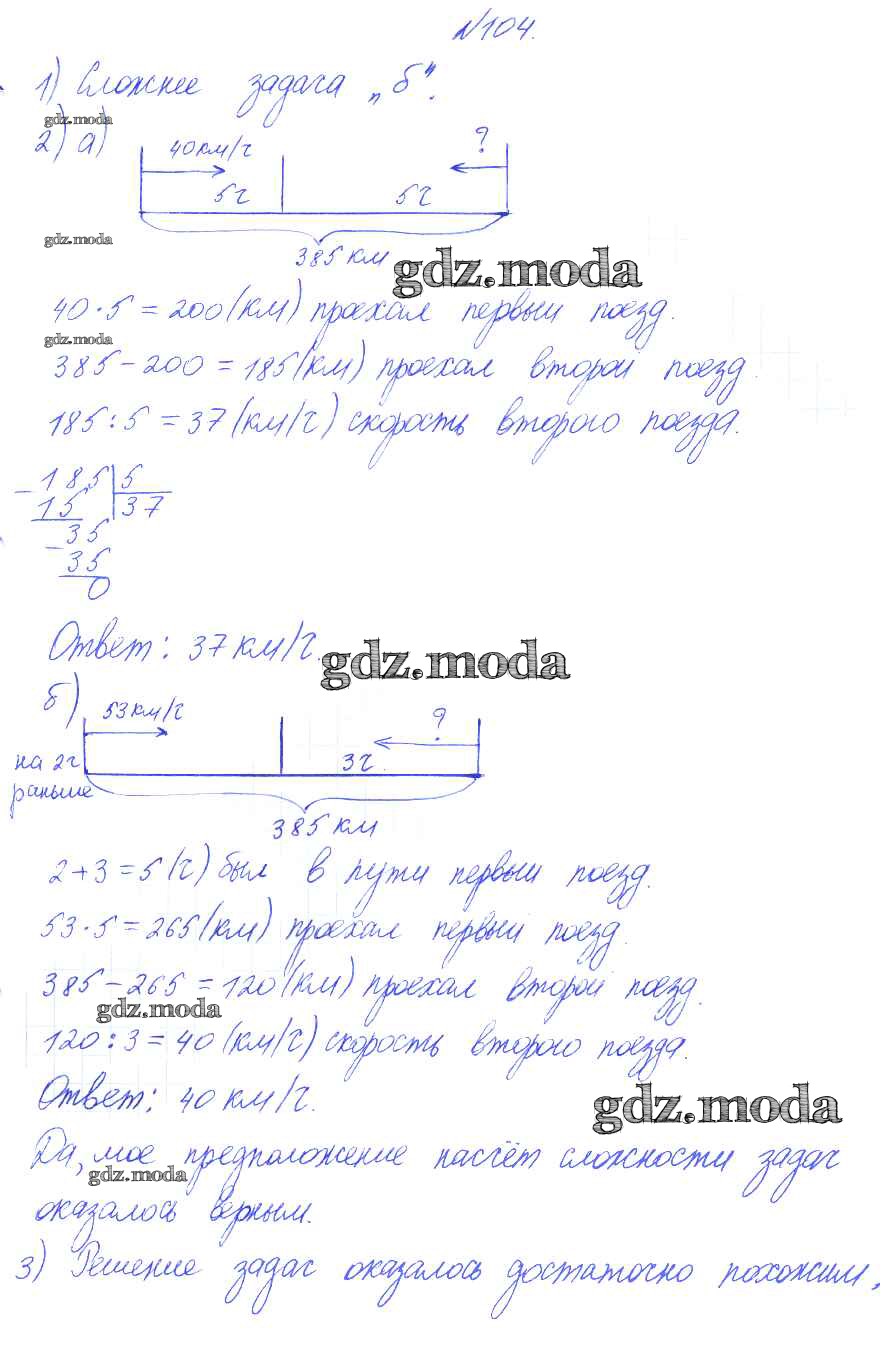 №104.
1) Сложнее задача „б".
gdz.moda
2) а)
40км/ч
?
5ч
5ч
gdz.moda
385 км
gdz.moda
40·5=200(км) проехал первый поезд.
gdz.moda
385-200=185(км) проехал второй поезд.
185:5=37(км/ч) скорость второго поезда.
-185|5
15 37
-35
35
0
Ответ: 37 км/ч.
gdz.moda
б)
53км/ч
?
на 2ч
раньше
3ч
385 км
2+3=5(ч) был в пути первый поезд.
53·5=265(км) проехал первый поезд.
385-265=120(км) проехал второй поезд.
gdz.moda
120:3=40(км/ч) скорость второго поезда.
Ответ: 40 км/ч.
gdz.moda
Да, мое предположение насчёт сложности задач
gdz.moda
оказалось верным.
3) Решение задач оказалось достаточно похожим,